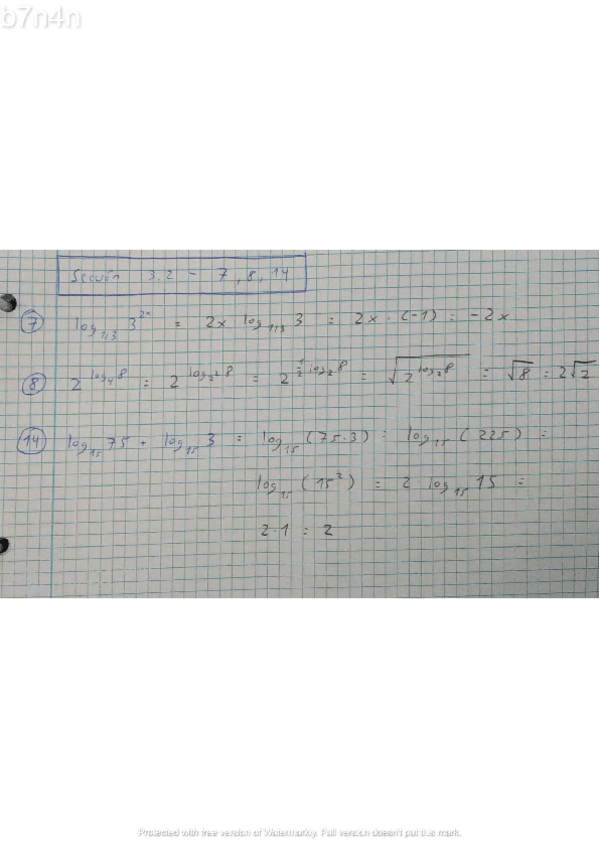 b7n4n
Sección 3.2 - 7, 8, 14
7 log₁/₃ 3²ˣ = 2x log₁/₃ 3 = 2x · (-1) = -2x
8 2^(log₄8) = 2^(log₂²8) = 2^(½log₂8) = √(2^(log₂8)) = √8 = 2√2
14 log₁₅ 75 + log₁₅ 3 = log₁₅ (75·3) = log₁₅ (225) =
log₁₅ (15²) = 2 · log₁₅ 15 =
2·1 = 2
Protected with free version of Watermarkly. Full version doesn't put this mark.